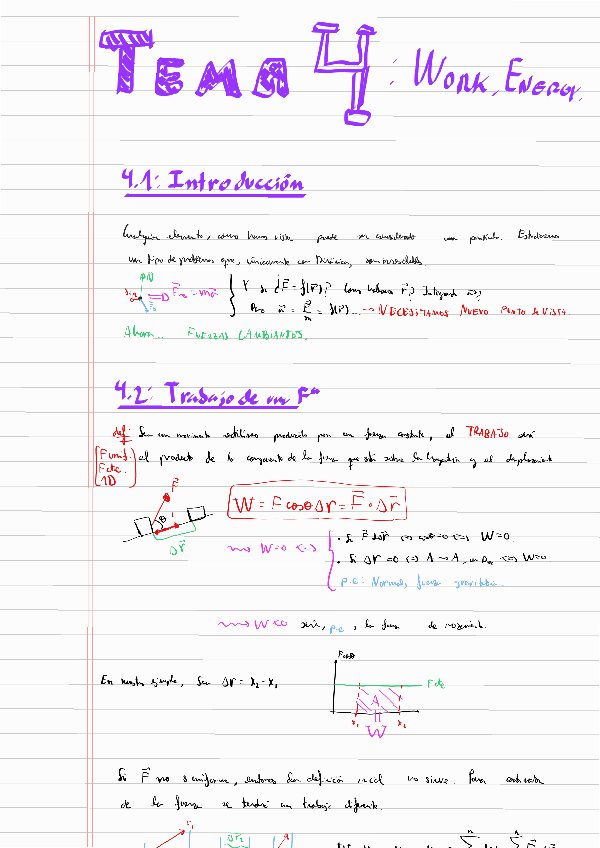 TEMA 4: WORK, ENERGY,
4.1: Introducción
Cualquier elemento, como hemos visto puede ser considerado una partícula. Estudiaremos
un tipo de problemas que, únicamente con Dinámica, son irresolubles.
Y si ¿F⃗ = f(r⃗)? Como hallamos r⃗? Integrando
Pero a⃗ = F⃗/m = f(r⃗) ... → NECESITAMOS NUEVO PUNTO de VISTA
Ahora... FUERZAS CAMBIANTES.
4.2: Trabajo de un Fª
def: Sea un movimiento rectilíneo producido por un fuerza constante, el TRABAJO será
[F unif. Fcte. 1D] al producto de la componente de la fuerza que está sobre la trayectoria y el desplazamiento
F⃗
θ
Δr⃗
W = F cosθ Δr = F⃗ · Δr⃗
W=0 <=>
• Si F⃗ ⊥ Δr⃗ <=> cosθ=0 <=> W=0.
• Si Δr=0 <=> A → A, <=> W=0
p.e: Normal, fuerza gravitatoria.
W<0 será, p.e, la fuerza de rozamiento.
En nuestro ejemplo, sea Δr = x₂ - x₁
Fcosθ
Fcte
A
x₁ x₂
W
Si F⃗ no es uniforme, entonces la definición inicial no sirve. Para cada valor
de la fuerza se tendrá un trabajo diferente.